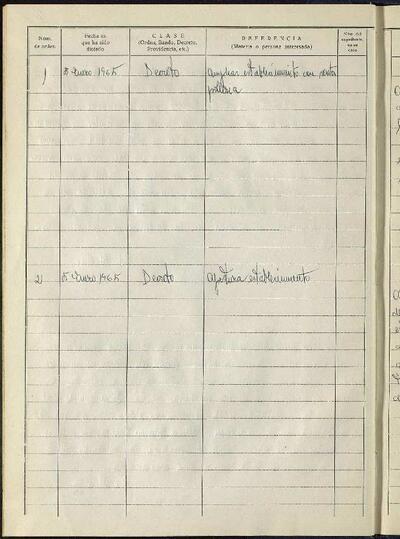 Núm. de orden
Fecha en que ha sido dictado
CLASE
(Orden, Bando, Decreto, Providencia, etc.)
REFERENCIA
(Materia o persona interesada)
Núm. del expediente, en su caso
1 5 Enero 1965 Decreto ampliar establecimiento con venta
2 5 Enero 1965 Decreto apertura establecimiento